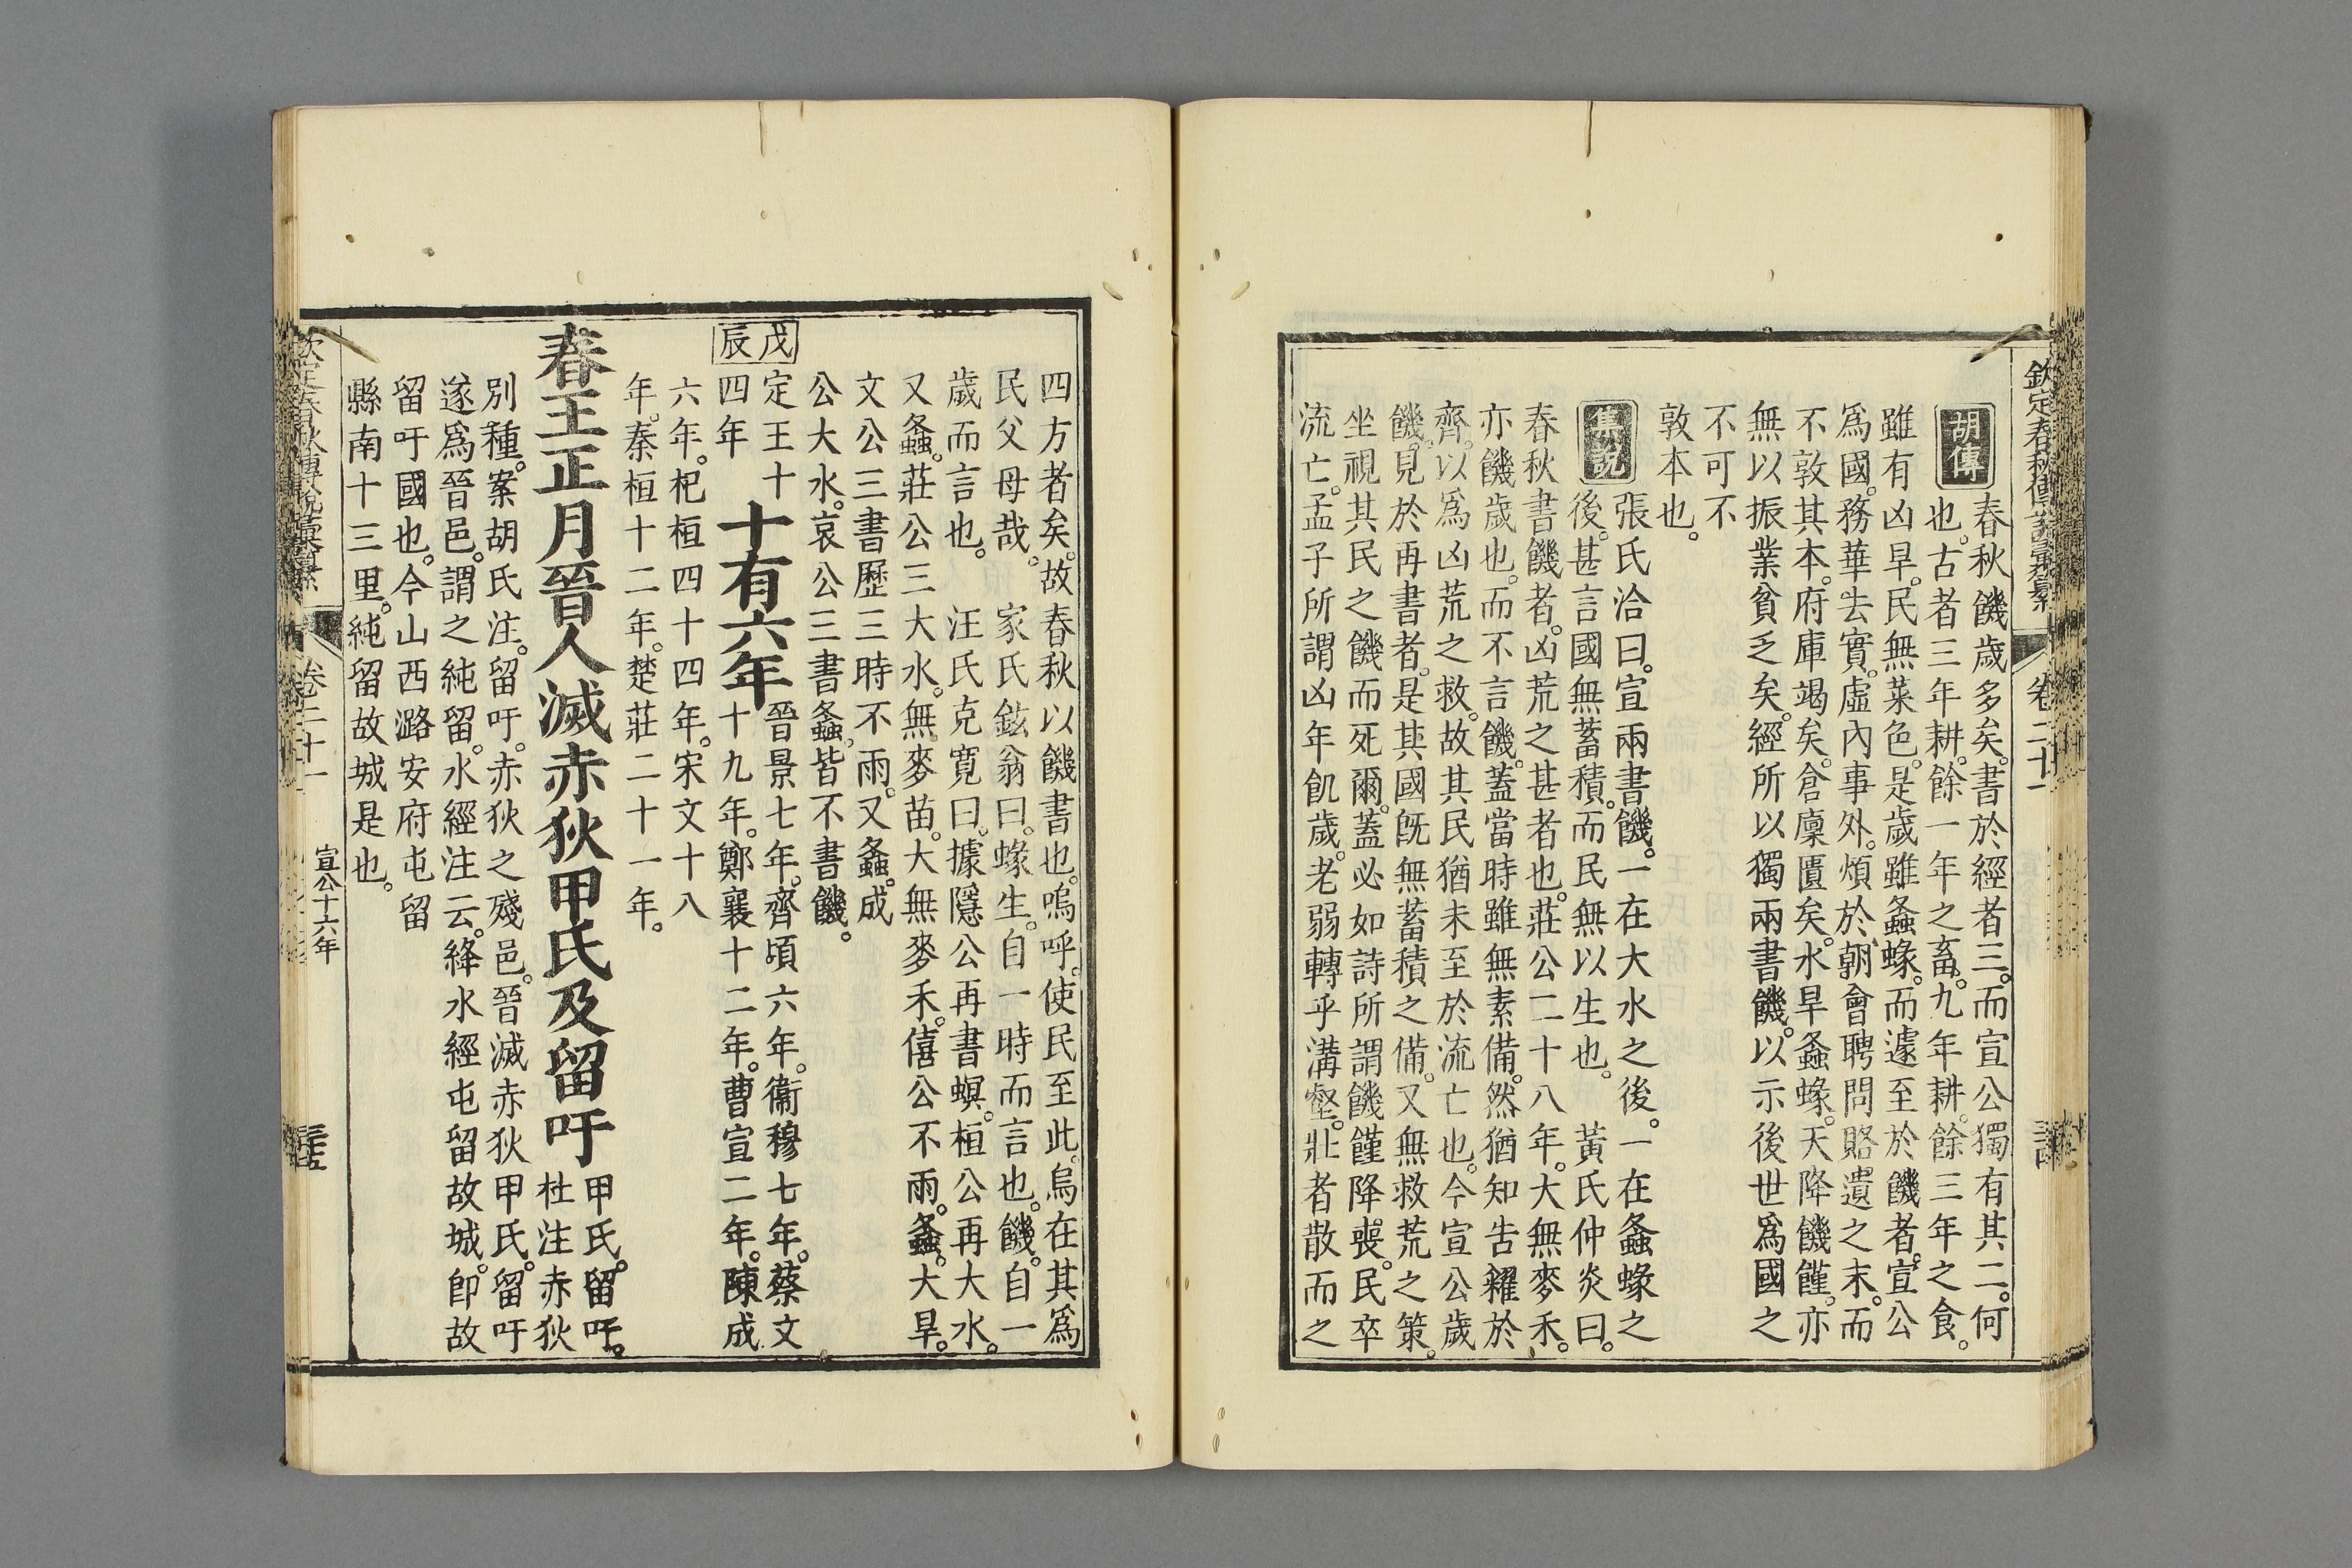 欽定春秋傳說彙纂 卷二十一
胡傳
春秋饑歲多矣。書於經者三。而宣公獨有其二。何
也。古者三年耕。餘一年之畜。九年耕。餘三年之食。
雖有凶旱。民無菜色。是歲雖螽蝝。而遽至於饑者。宣公
爲國。務華去實。虛內事外。煩於朝會聘問賂遺之末。而
不敦其本。府庫竭矣。倉廩匱矣。水旱螽蝝。天降饑饉。亦
無以振業貧乏矣。經所以獨兩書饑。以示後世爲國之
不可不
敦本也。
集說
張氏洽曰。宣兩書饑。一在大水之後。一在螽蝝之
後。甚言國無蓄積。而民無以生也。 黃氏仲炎曰。
春秋書饑者。凶荒之甚者也。莊公二十八年。大無麥禾。
亦饑歲也。而不言饑。蓋當時雖無素備。然猶知告糴於
齊。以爲凶荒之救。故其民猶未至於流亡也。今宣公歲
饑。見於再書者。是其國旣無蓄積之備。又無救荒之策。
坐視其民之饑而死爾。蓋必如詩所謂饑饉降喪。民卒
流亡。孟子所謂凶年飢歲。老弱轉乎溝壑。壯者散而之
四方者矣。故春秋以饑書也。嗚呼。使民至此。烏在其爲
民父母哉。 家氏鉉翁曰。蝝生。自一時而言也。饑。自一
歲而言也。 汪氏克寬曰。據隱公再書螟。桓公再大水。
又螽。莊公三大水。無麥苗。大無麥禾。僖公不雨。螽。大旱。
文公三書歷三時不雨。又螽。成
公大水。哀公三書螽。皆不書饑。
戊辰
定王十
四年
十有六年
晉景七年。齊頃六年。衞穆七年。蔡文
十九年。鄭襄十二年。曹宣二年。陳成
六年。杞桓四十四年。宋文十八
年。秦桓十二年。楚莊二十一年。
春王正月晉人滅赤狄甲氏及留吁
甲氏。留吁。
杜注赤狄
別種。案胡氏注。留吁。赤狄之殘邑。晉滅赤狄甲氏。留吁
遂爲晉邑。謂之純留。水經注云。絳水經屯留故城。卽故
留吁國也。今山西潞安府屯留
縣南十三里。純留故城是也。
宣公十六年
卷二十一